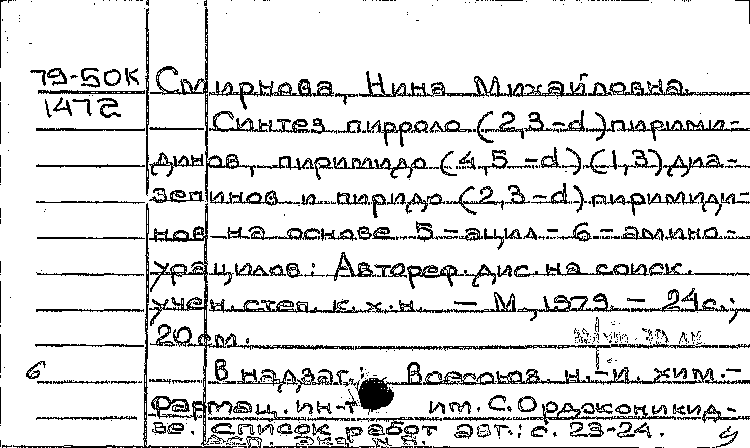 79-50к
1472
Смирнова, Нина Михайловна.
Синтез пирроло (2,3-d) пирими-
динов, пиримидо (4,5-d) (1,3) диа-
зепинов и пиридо (2,3-d) пиримиди-
нов на основе 5-ацил-6-амино-
урацилов: Автореф. дис. на соиск.
учен. степ. к. х. н. — М, 1979. — 24с.;
20 см.
6
В надзаг.: Всесоюз. н.-и. хим.-
фармац. ин-т им. С. Орджоникид-
зе. Список работ авт.: с. 23-24.